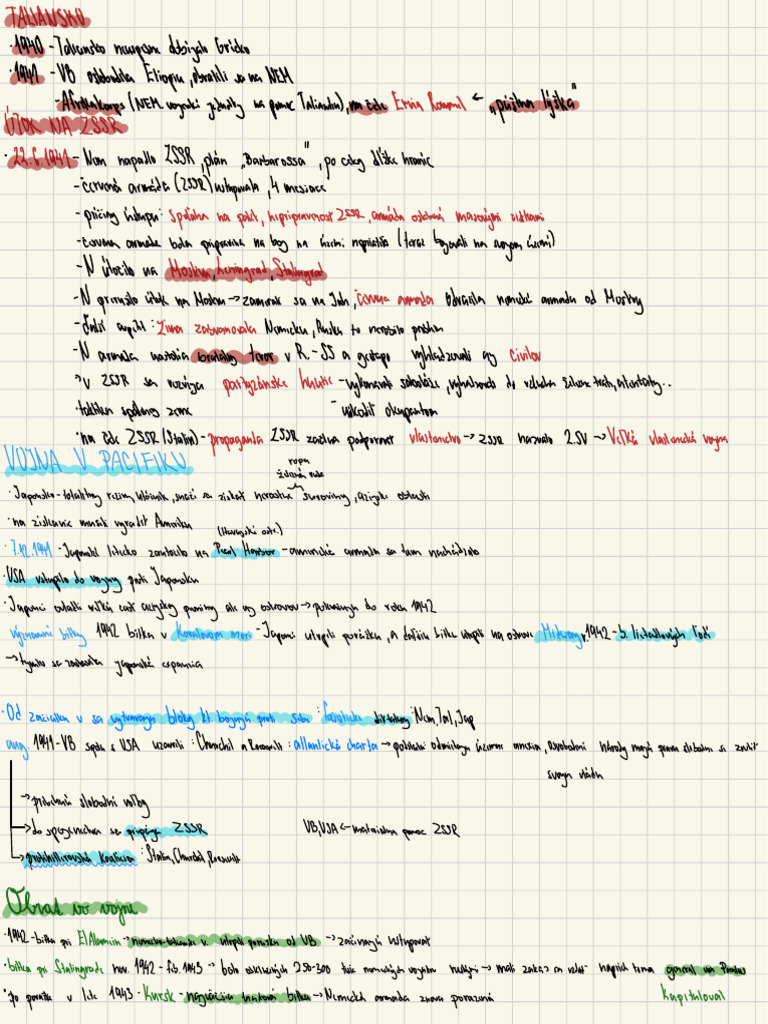 TALIANSKO
·1940 - Taliansko neúspešne dobýjalo Grécko
·1941 - VB oslobodila Etiópiu, obrátili sa na NEM
- Afrikakorps (NEM vojenské jednotky na pomoc Taliansku), na čele Erwin Rommel ← „púštna líška“
ÚTOK NA ZSSR
·22.6.1941 - Nem napadlo ZSSR, plán „Barbarossa“, po celej dĺžke hraníc
- červená armáda (ZSSR) ustupovala, 4 mesiace
- príčiny ústupu: spoľahla na pakt, nepripravenosť ZSSR, armáda oslabená masovými čistkami
- červená armáda bola pripravená na boj na území nepriateľa (teraz bojovali na svojom území)
- N útočilo na Moskvu, Leningrad, Stalingrad
- N prerušilo útok na Moskvu → zamerali sa na Juh, červená armáda odrazila nemeckú armádu od Moskvy
- Ďalší : Zima zaskočila Nemecko, Rusku to nerobilo problém
- N armáda nastolila brutálny teror v R. - SS a gestapo vyhladzovali aj civilov
→ v ZSSR sa rozvíja partizánske hnutie - vykonávali sabotáže, vyhadzovali do vzduchu železničné trate, atentáty..
·taktika spálenej zeme - uškodiť okupantom
·na čele ZSSR (Stalin) - propaganda ZSSR začína podporovať vlastenectvo → ZSSR nazvalo 2.SV → Veľká vlastenecká vojna
VOJNA V PACIFIKU
ropa
železná ruda
·Japonsko - totalitný režim, snaží sa získať nerastné suroviny, ázijské oblasti
·na získanie museli vyradiť Ameriku
(Havajské ostr.)
·7.12.1941 - Japonské letectvo zaútočilo na Pearl Harbor - americká armáda sa tam nachádzala
·USA vstúpilo do vojny proti Japonsku
·Japonci ovládli veľkú časť ázijskej pevniny ale aj ostrovov → do roku 1942
významné bitky 1942 bitka v Koralovom mori - Japonci utrpeli porážku, a ďalšiu bitku utrpeli na ostrove Midway, 1942 - b. lietadlových lodí
→ týmto sa zastavila japonská expanzia
·Od začiatku v sa vytvárajú bloky kt bojujú proti sebe : fašistické diktatúry: Nem, Tal, Jap
aug. 1941 - VB spolu s USA uzavreli : Churchil a Roosevelt : atlantická charta → odmietnutie územné, národy majú právo slobodne si zvoliť
svoju vládu
→ slobodné voľby
→ do spojenectva sa pripája ZSSR VB, USA ← materiálna pomoc ZSSR
→ protihitlerovská koalícia : Stalin, Churchil, Roosevelt
Obrat vo vojne
·1942 - bitka pri El Alamein → nemecko-talianske v. utrpeli porážku od VB → začínajú ustupovať
·bitka pri Stalingrade nov. 1942 - feb. 1943 → bolo obkľúčených 250-300 tisíc nemeckých vojakov → mali zákaz sa vzdať napriek tomu generál von Paulus
kapituloval
·Po porážke v lete 1943 - Kursk - najväčšia tanková bitka → Nemecká armáda znova porazená